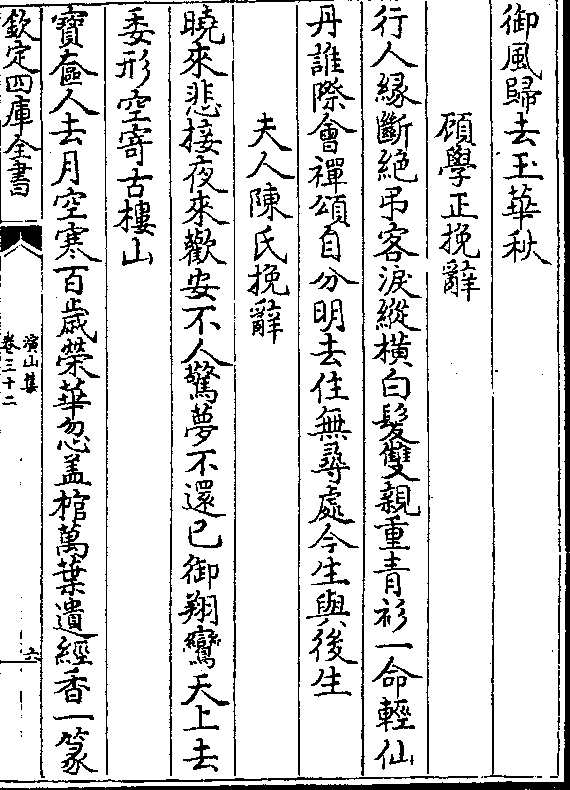 御風歸去玉華秋
顧學正挽辭
行人緣斷絶弔客淚縱橫白髮雙親重青衫一命輕仙
丹誰際會禪頌自分明去住無尋處今生與後生
夫人陳氏挽辭
曉來悲接夜來歡安不人驚夢不還已御翔鸞天上去
委形空寄古樓山
寶奩人去月空寒百歲榮華忽盖棺萬葉遺經香一篆
欽定四庫全書
演山集
卷三十二
六